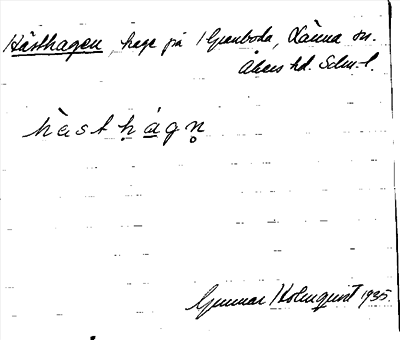 Hästhagen, hage på Granboda, Länna sn.
Åkers hd. Sdm-l.
hàstḥa̲gn̥
Gunnar Holmquist 1935.